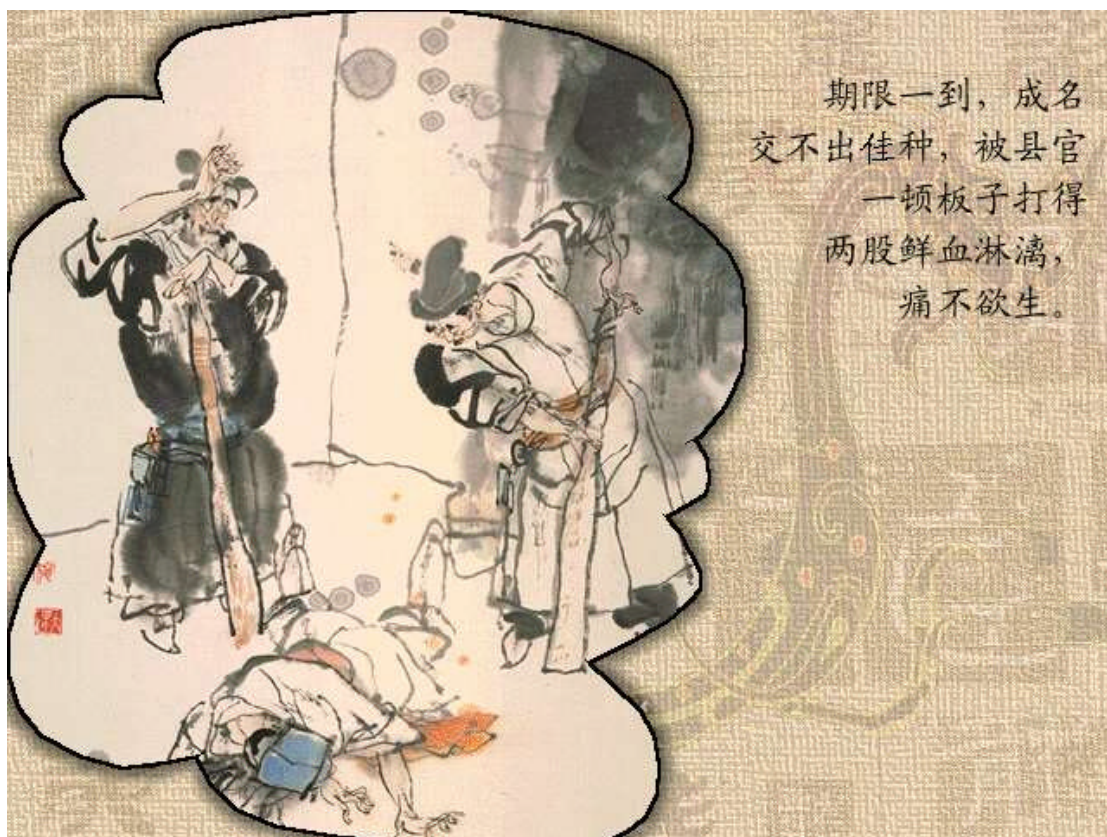 期限一到，成名
交不出佳种，被县官
一顿板子打得
两股鲜血淋漓，
痛不欲生。